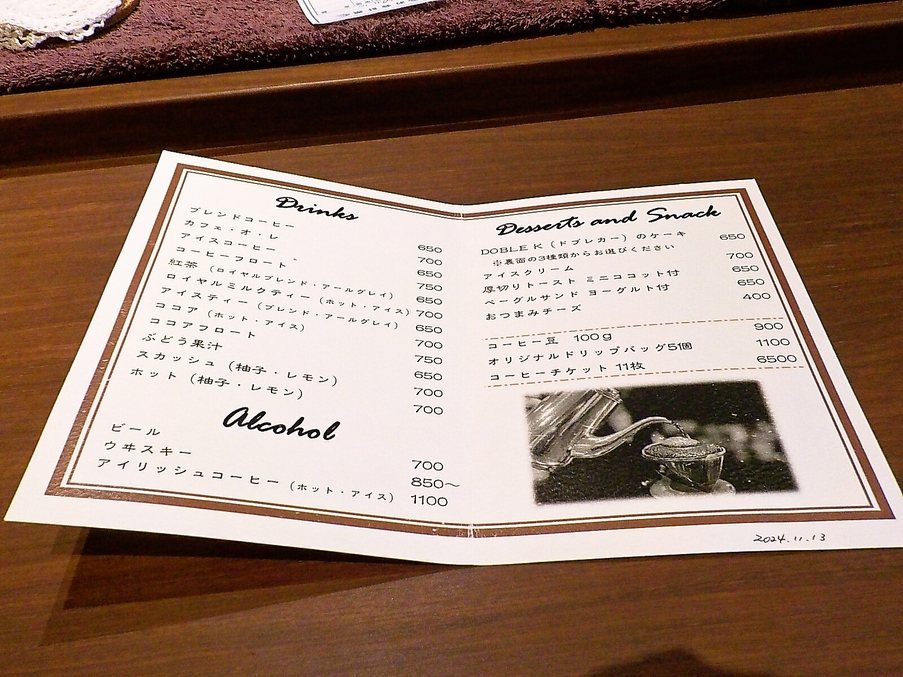 Drinks
ブレンドコーヒー 650
カフェ・オ・レ 700
アイスコーヒー 650
コーヒーフロート 750
紅茶 (ロイヤルブレンド・アールグレイ)
ロイヤルミルクティー (ホット・アイス) 700
アイスティー (ブレンド・アールグレイ) 650
ココア (ホット・アイス) 700
ココアフロート 750
ぶどう果汁 650
スカッシュ (柚子・レモン) 700
ホット (柚子・レモン) 700
Alcohol
ビール 700
ウヰスキー 850～
アイリッシュコーヒー (ホット・アイス) 1100
Desserts and Snack
DOBLE K (ドブレカー) のケーキ 650
※裏面の3種類からお選びください
アイスクリーム 700
厚切りトースト ミニココット付 650
ベーグルサンド ヨーグルト付 650
おつまみチーズ 400
コーヒー豆 100g 900
オリジナルドリップバッグ5個 1100
コーヒーチケット 11枚 6500
2024.11.13